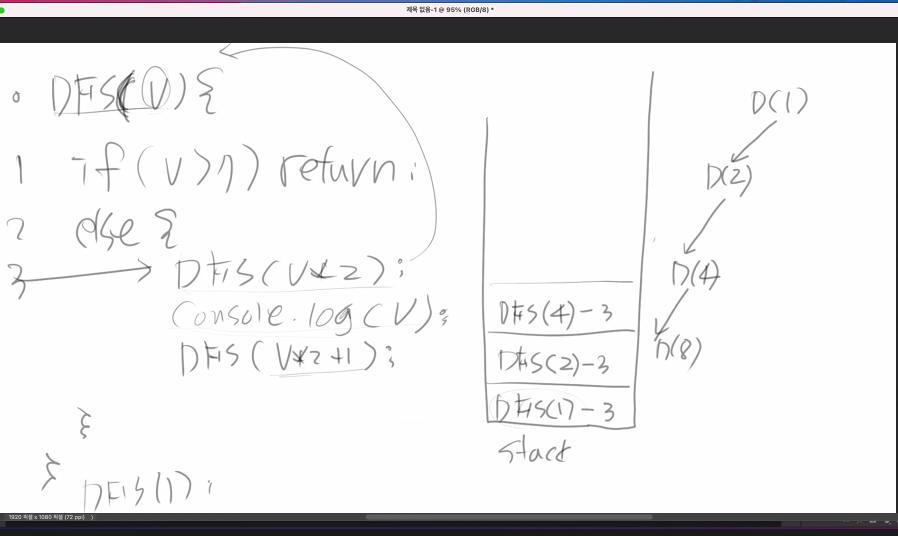 제목 없음-1 @ 95% (RGB/8) *
0 DFS(V){
1 if(V>7) return;
2 else {
3 DFS(V*2);
Console.log(V);
DFS(V*2+1);
}
}
DFS(1);
DFS(4)-3
DFS(2)-3
DFS(1)-3
stack
D(1)
D(2)
D(4)
D(8)
1920 픽셀 x 1080 픽셀 (72 ppi)